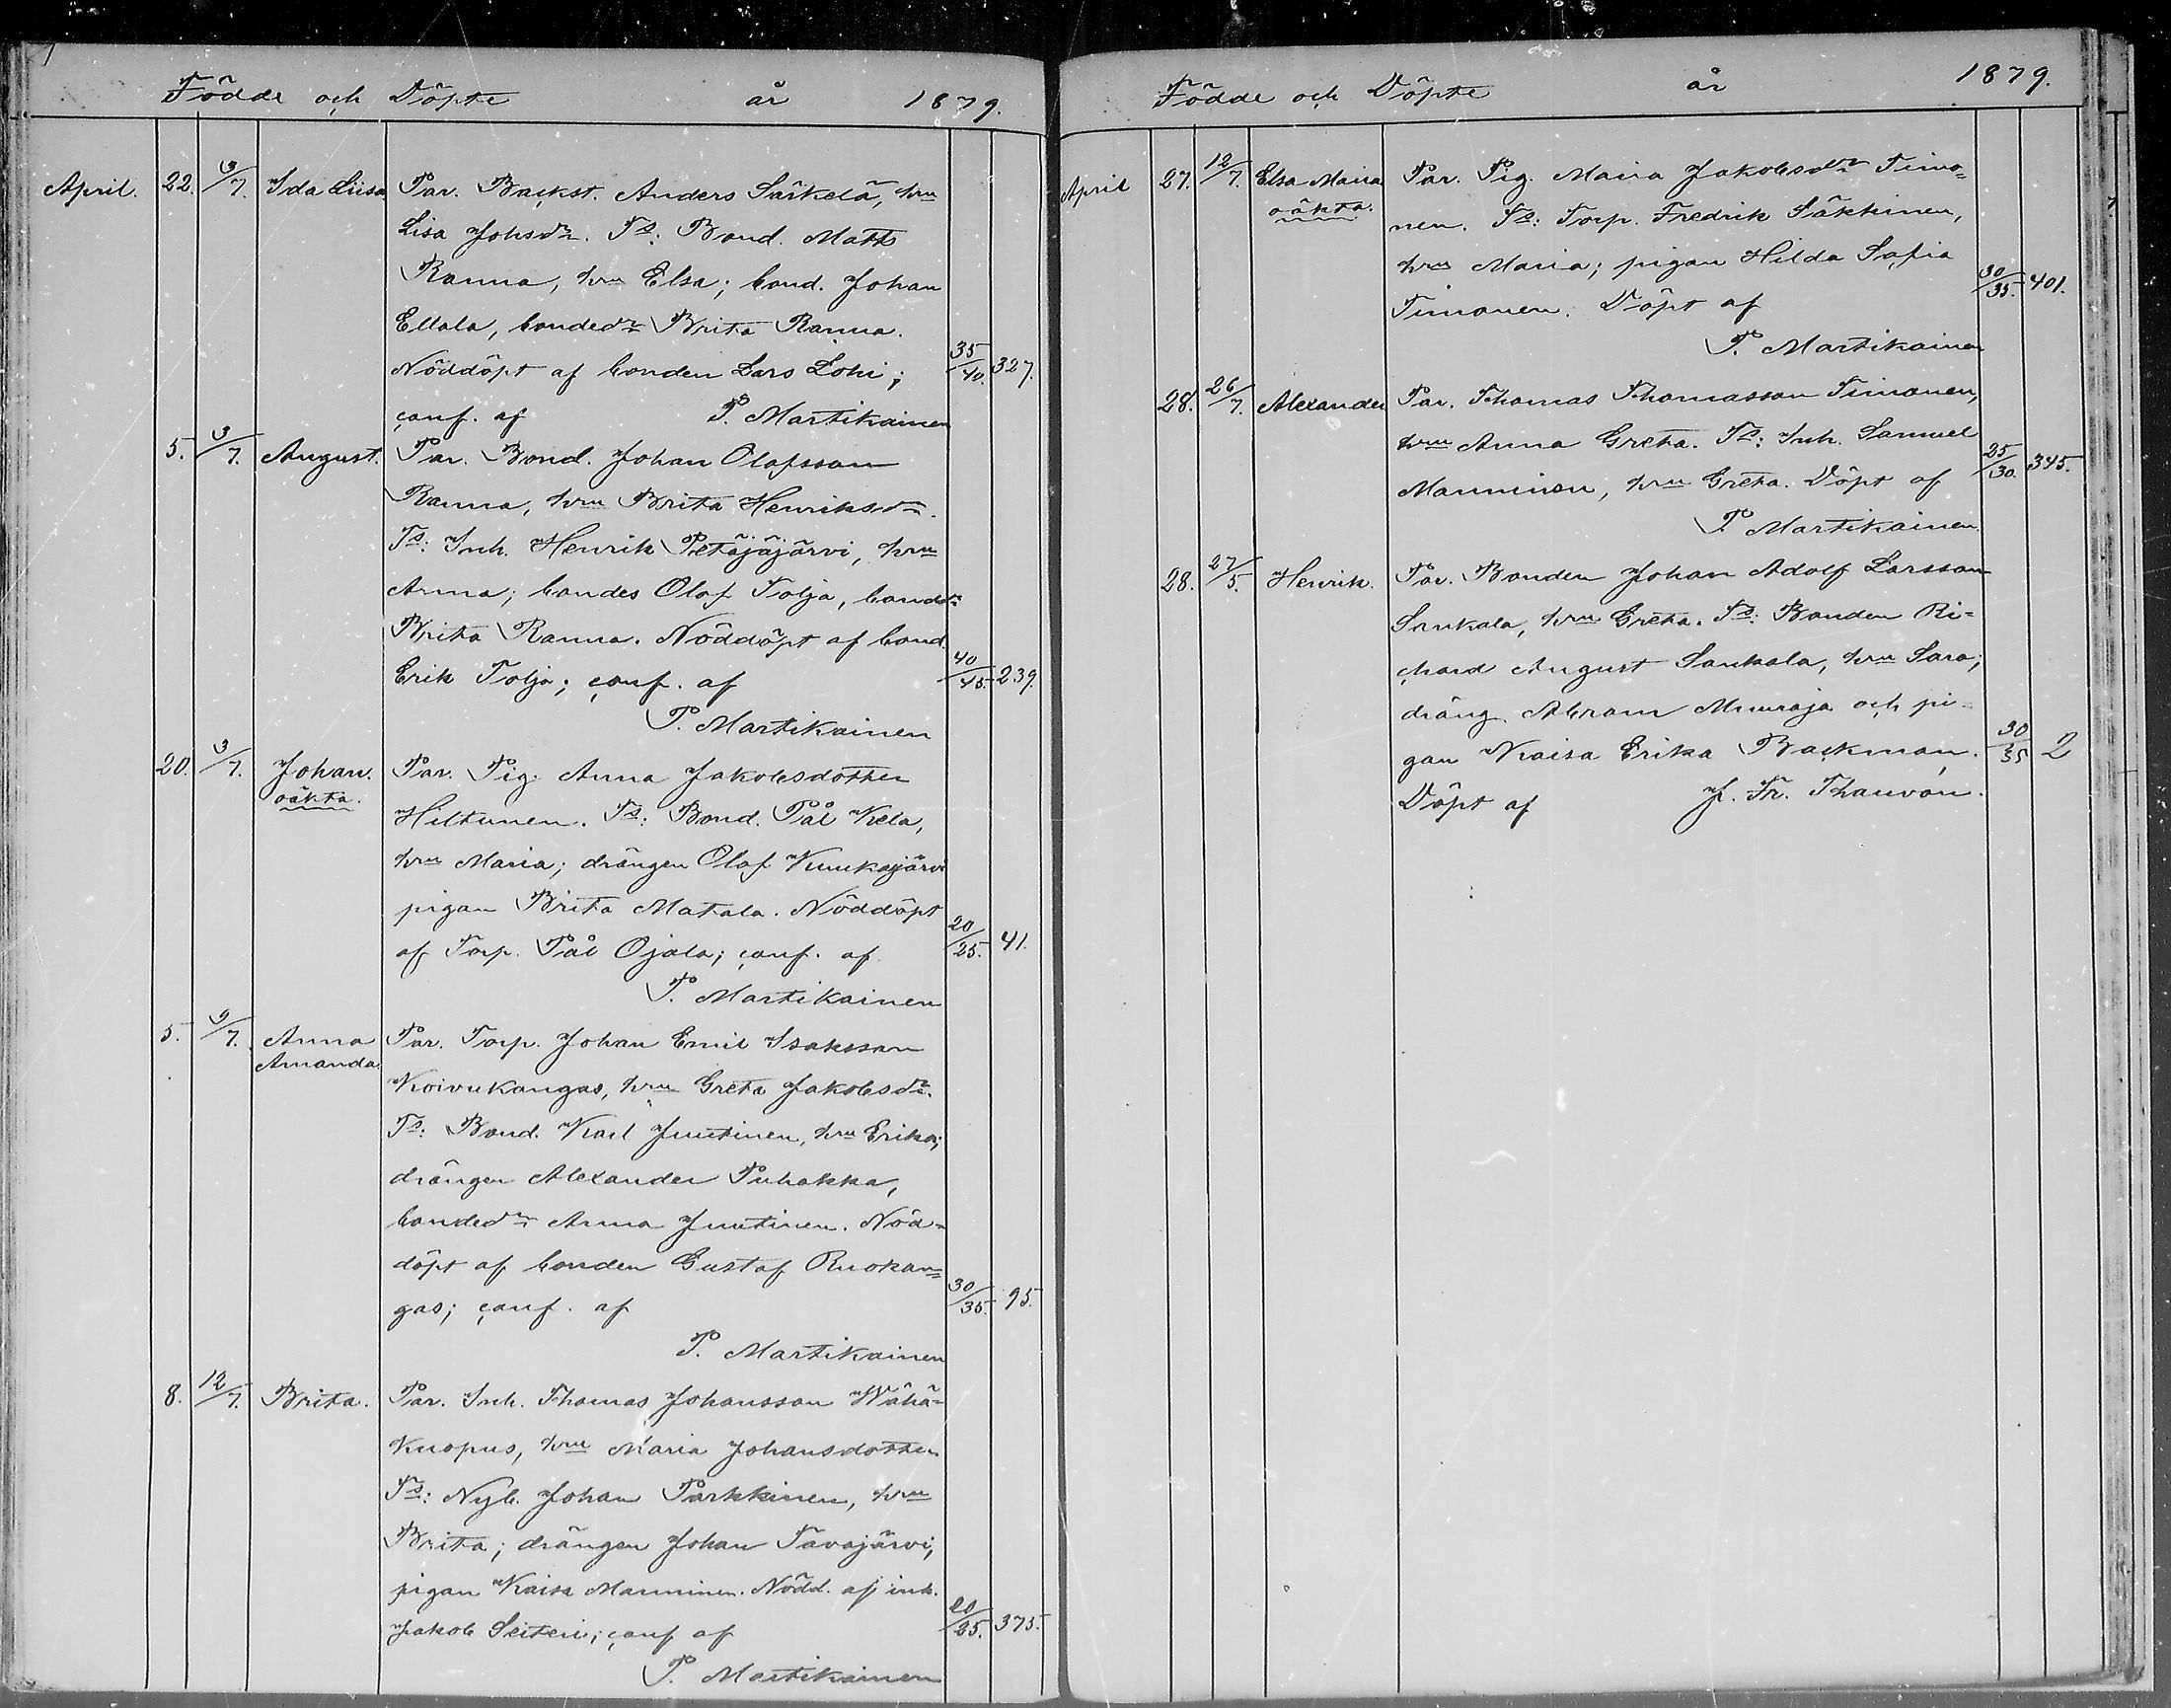 Födde och Döpte år 1879.
April. 22. 3/7. Ida Liisa Par. Backst. Anders Särkelä, hru
Lisa Johsdr. Ts: Bond. Matts
Ranna, hru Elsa; bond. Johan
Ellala, bondedr Brita Ranna.
Nöddöpt af bonden Lars Lohi; 35/40. 327.
conf. af P. Martikainen
5. 3/7. August. Par. Bond. Johan Olofsson
Ranna, hru Brita Henriksdr.
Ts: Inh. Henrik Petäjäjärvi, hru
Anna; bondes Olof Tolja, bondedr
Brita Ranna. Nöddöpt af bond.
Erik Tolja; conf. af 40/45. 239.
P. Martikainen
20. 3/7. Johan. Par. Pig. Anna Jakobsdotter
oäkta.
Hiltunen. Ts: Bond. Pål Kela,
hru Maria; drängen Olof Kuukasjärvi
pigan Brita Matala. Nöddöpt
af Torp. Pål Ojala; conf. af 20/25. 41.
P. Martikainen
5. 9/7. Anna Par. Torp. Johan Emil Isaksson
Amanda
Koivukangas, hru Greta Jakobsdr.
Ts: Bond. Karl Juutinen, hru Erika;
drängen Alexander Puhakka,
bondedr Anna Juutinen. Nöd-
döpt af bonden Gustaf Ruokan=
gas; conf. af 30/35. 95.
P. Martikainen
8. 12/7. Brita. Par. Inh. Thomas Johansson Wähä-
kuopus, hru Maria Johansdotter
Ts: Nyb. Johan Parkkinen, hru
Brita; drängen Johan Tavajärvi,
pigan Kaisa Manninen. Nödd. af inh.
Jakob Seiteri; conf af 20/25. 375.
P. Martikainen
Födde och Döpte år 1879.
April 27. 12/7. Elsa Maria Par. Pig. Maria Jakobsdr Timo=
oäkta.
nen. Ts: Torp. Fredrik Säkkinen,
hru Maria; pigan Hilda Sofia
Timonen. Döpt af 30/35. 401.
P. Martikainen
28. 26/7. Alexander Par. Thomas Thomasson Timonen,
hru Anna Greta. Ts: Inh. Samuel
Manninen, hru Greta. Döpt af 25/30. 345.
P. Martikainen.
28. 27/5. Henrik. Par. Bonden Johan Adolf Larsson
Sankala, hru Greta. Ts: Bonden Ri-
chard August Sankala, hru Sara;
dräng. Abram Muuraja och pi-
gan Kaisa Erika Backman. 30/35 2
Döpt af J. Fr. Thauvón.